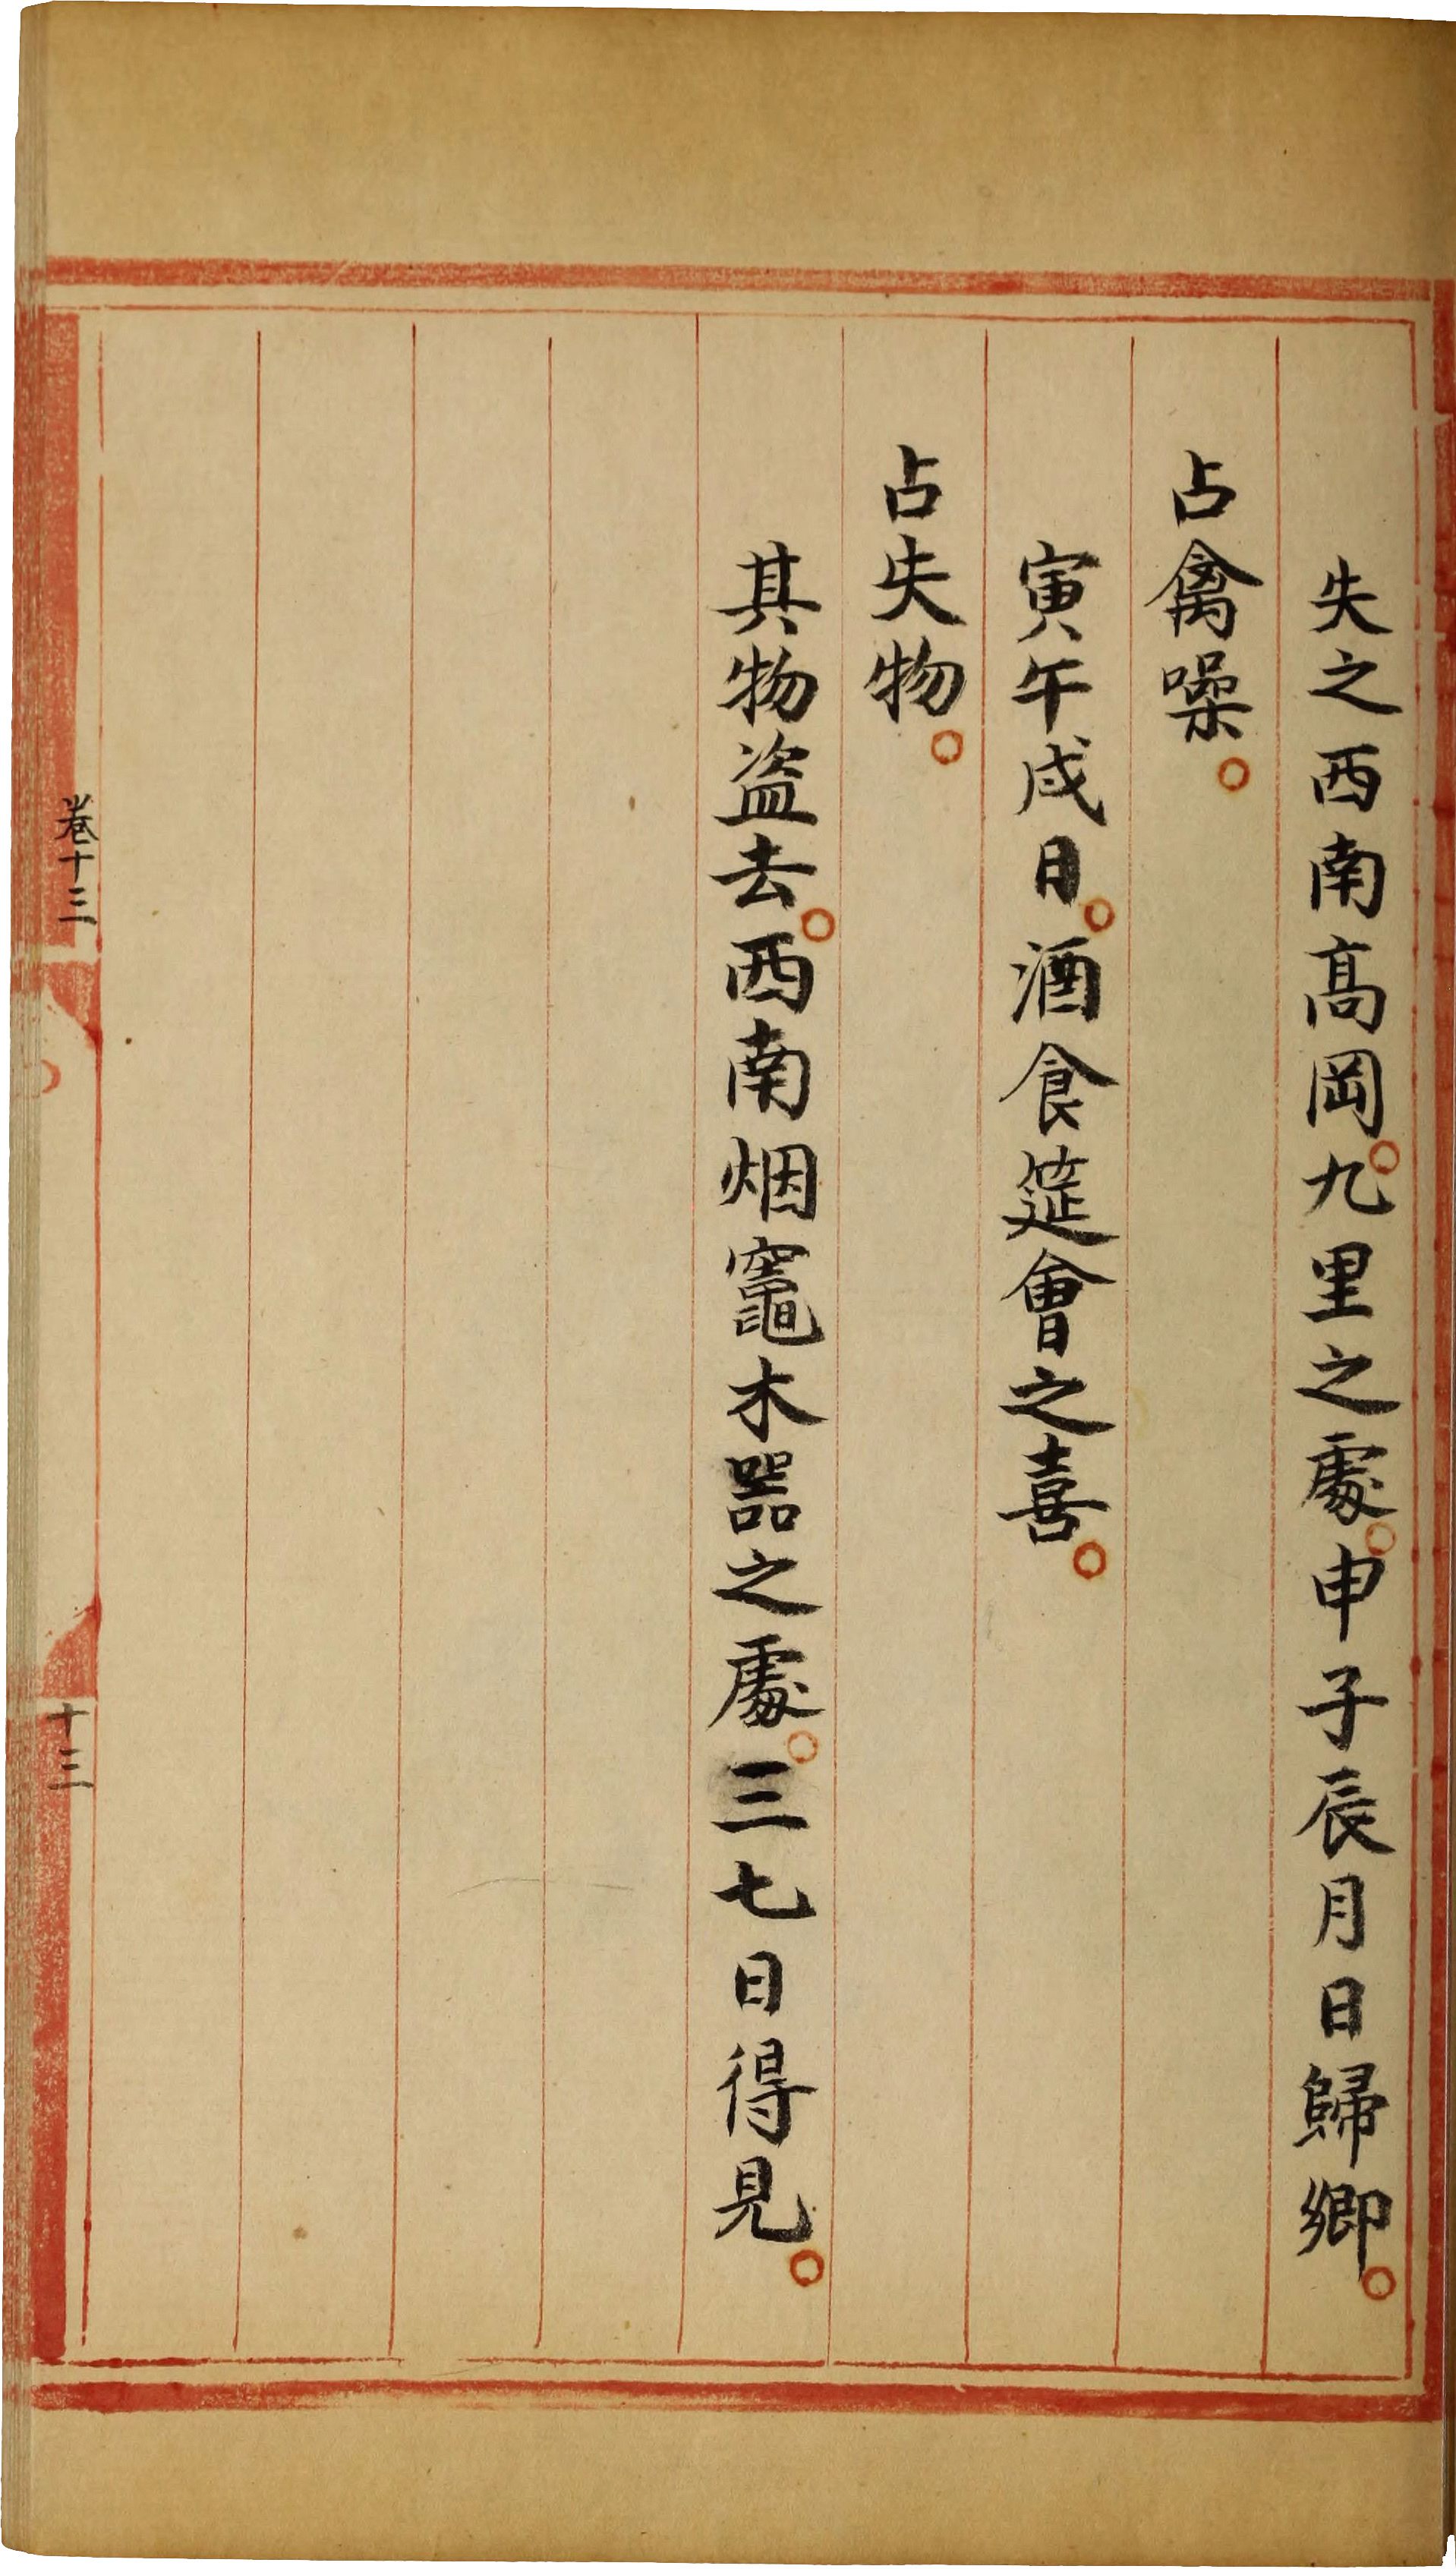 失之西南高岡。九里之處。申子辰月日歸鄉。
占禽噪。
寅午戌日。酒食筵會之喜。
占失物。
其物盗去。西南烟竈木器之處。三七日得見。
卷十三
十三